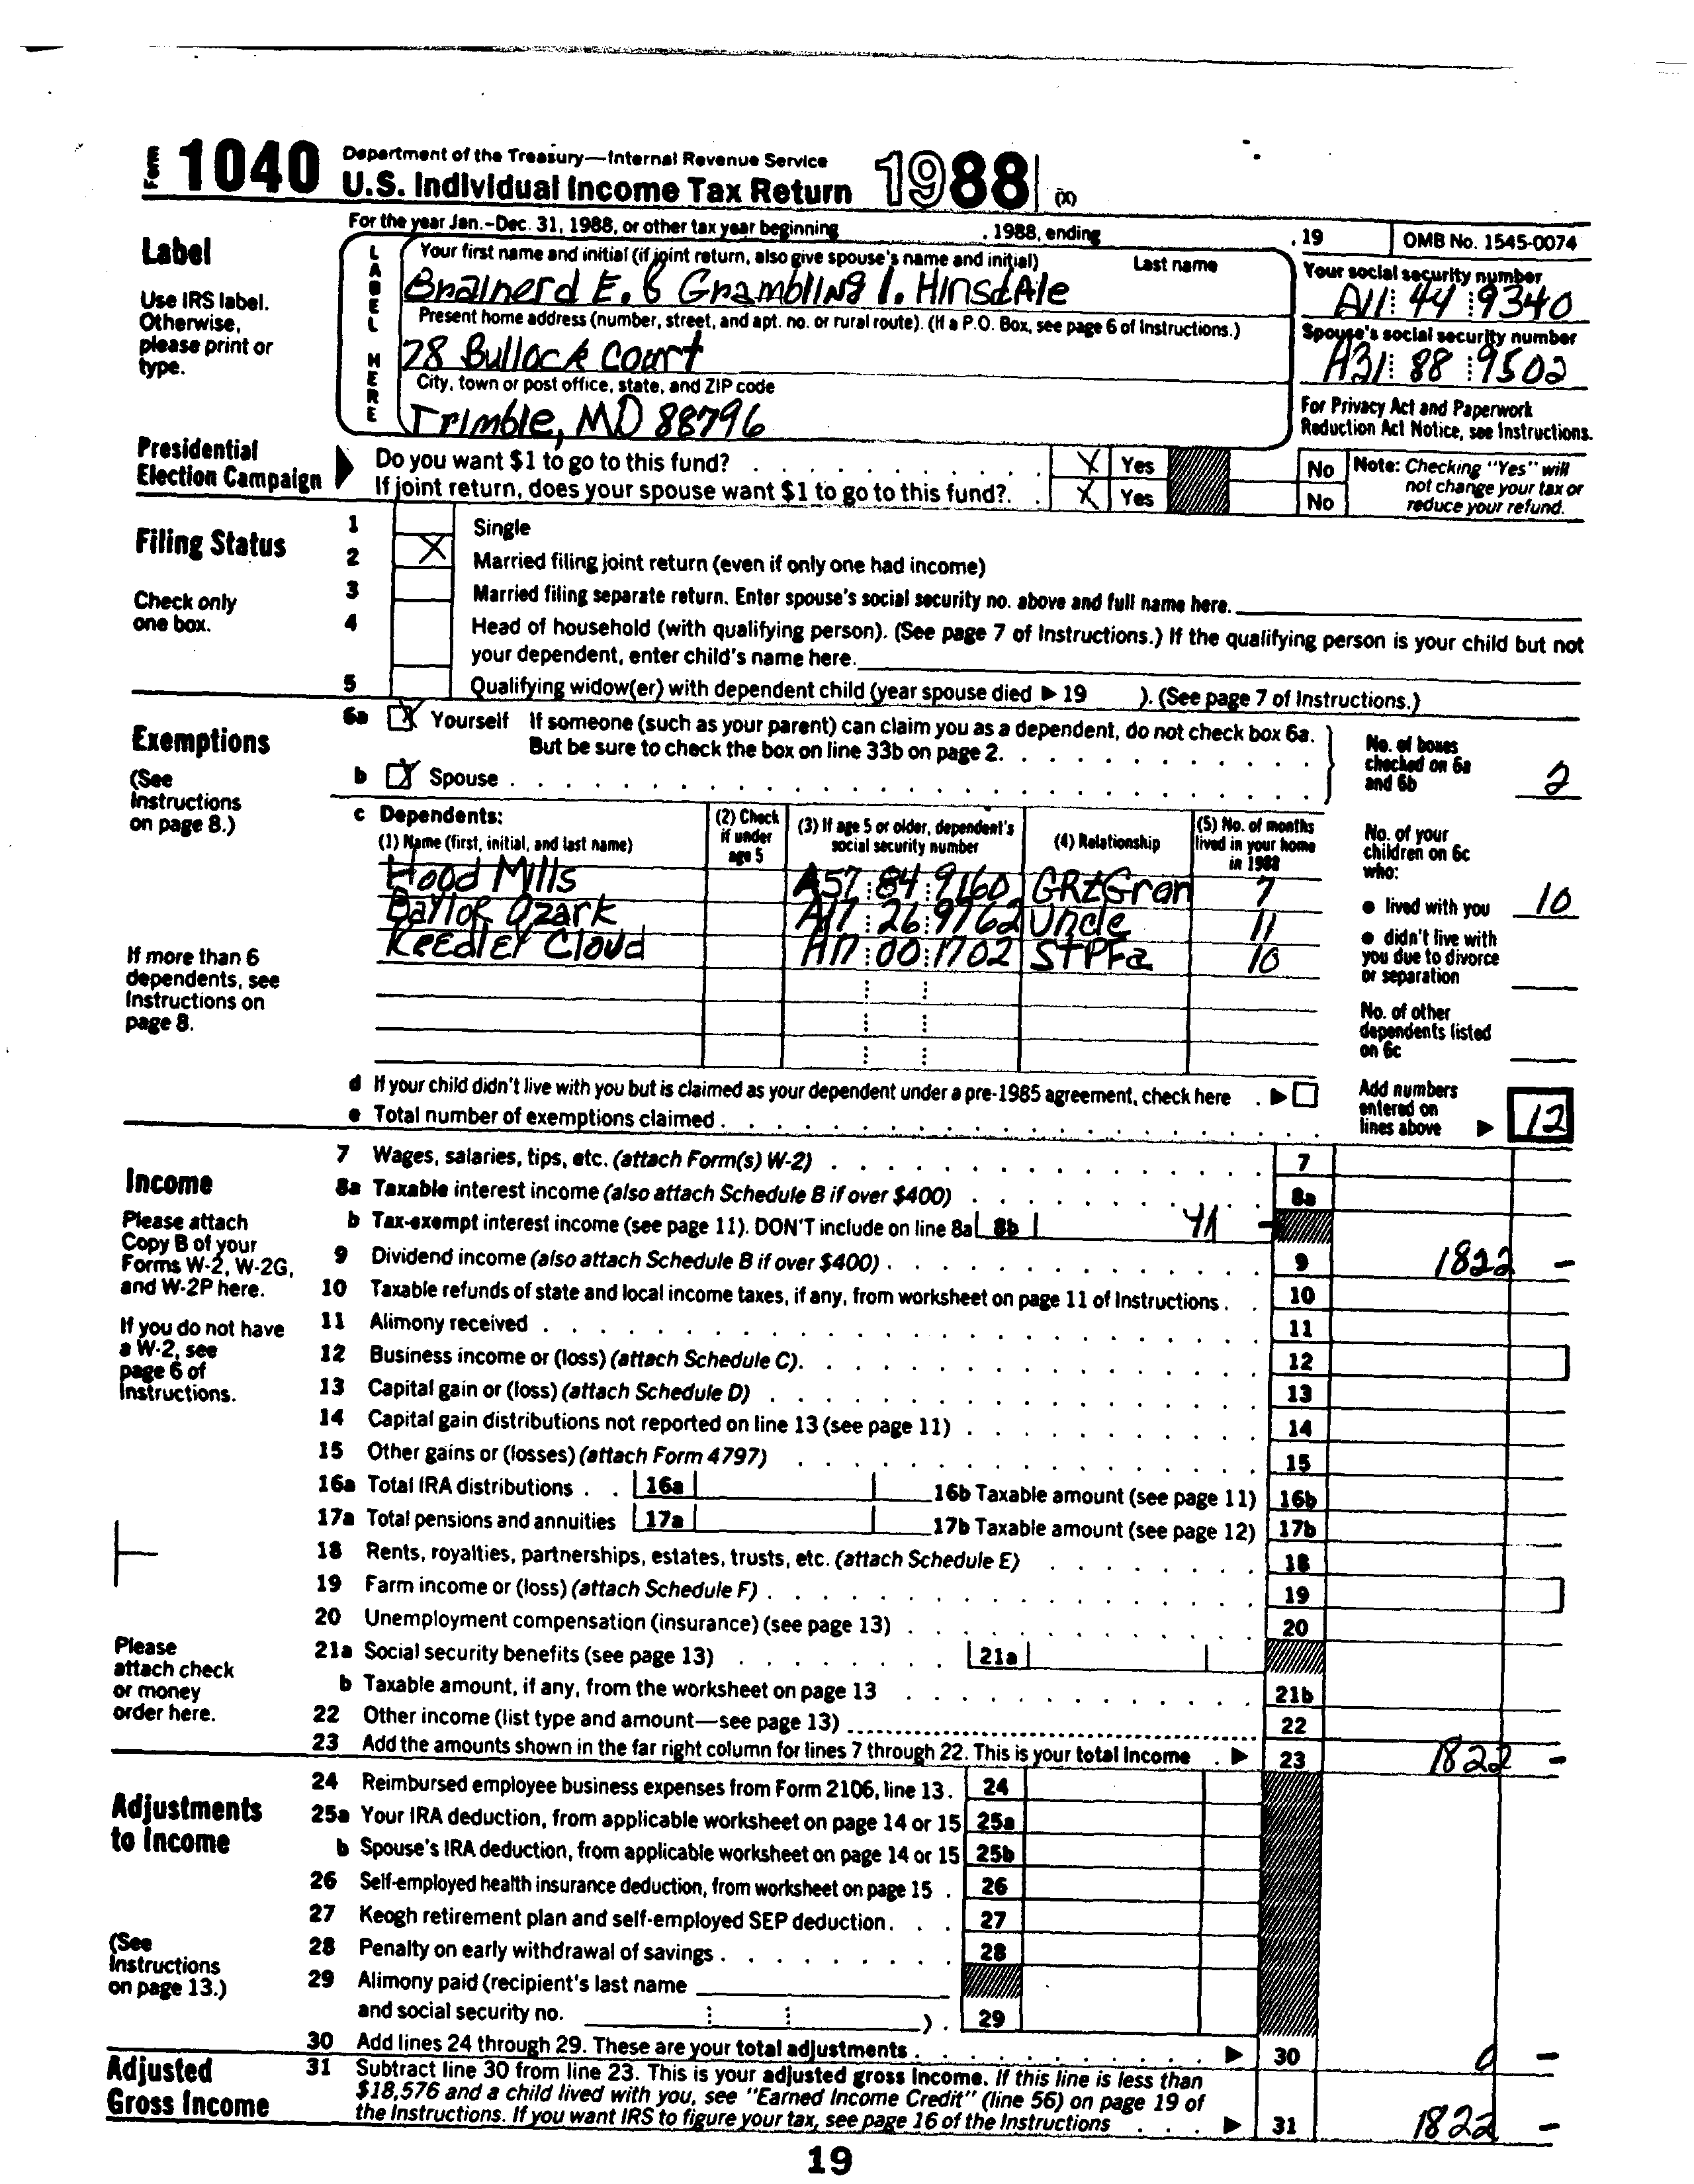 Form 1040 Department of the Treasury—Internal Revenue Service
U.S. Individual Income Tax Return 1988 (X)
For the year Jan.-Dec. 31, 1988, or other tax year beginning , 1988, ending , 19 OMB No. 1545-0074
Label
Use IRS label.
Otherwise,
please print or
type.
LABEL HERE
Your first name and initial (if joint return, also give spouse's name and initial) Last name
Brainerd E. & Grambling I. Hinsdale
Your social security number
A11 44 9340
Present home address (number, street, and apt. no. or rural route). (If a P.O. Box, see page 6 of Instructions.)
78 Bullock Court
Spouse's social security number
A31 88 9502
City, town or post office, state, and ZIP code
Trimble, MD 88796
For Privacy Act and Paperwork
Reduction Act Notice, see Instructions.
Presidential
Election Campaign
Do you want $1 to go to this fund? X Yes No
If joint return, does your spouse want $1 to go to this fund? X Yes No
Note: Checking "Yes" will
not change your tax or
reduce your refund.
Filing Status
Check only
one box.
1 Single
2 X Married filing joint return (even if only one had income)
3 Married filing separate return. Enter spouse's social security no. above and full name here.
4 Head of household (with qualifying person). (See page 7 of Instructions.) If the qualifying person is your child but not
your dependent, enter child's name here.
5 Qualifying widow(er) with dependent child (year spouse died ▶ 19 ). (See page 7 of Instructions.)
Exemptions
(See
Instructions
on page 8.)
If more than 6
dependents, see
Instructions on
page 8.
6a X Yourself If someone (such as your parent) can claim you as a dependent, do not check box 6a.
But be sure to check the box on line 33b on page 2.
b X Spouse
No. of boxes
checked on 6a
and 6b 2
c Dependents:
(1) Name (first, initial, and last name)
(2) Check
if under
age 5
(3) If age 5 or older, dependent's
social security number
(4) Relationship
(5) No. of months
lived in your home
in 1988
Hood Mills A57 84 9160 GRtGran 7
Baylor Ozark A17 26 9762 Uncle 11
Reedley Cloud A17 00 1702 StPFa 10
No. of your
children on 6c
who:
● lived with you 10
● didn't live with
you due to divorce
or separation
No. of other
dependents listed
on 6c
d If your child didn't live with you but is claimed as your dependent under a pre-1985 agreement, check here ▶
e Total number of exemptions claimed
Add numbers
entered on
lines above ▶ 12
Income
Please attach
Copy B of your
Forms W-2, W-2G,
and W-2P here.
If you do not have
a W-2, see
page 6 of
Instructions.
Please
attach check
or money
order here.
7 Wages, salaries, tips, etc. (attach Form(s) W-2) 7
8a Taxable interest income (also attach Schedule B if over $400) 8a
b Tax-exempt interest income (see page 11). DON'T include on line 8a 8b 41 -
9 Dividend income (also attach Schedule B if over $400) 9 1822 -
10 Taxable refunds of state and local income taxes, if any, from worksheet on page 11 of Instructions 10
11 Alimony received 11
12 Business income or (loss) (attach Schedule C) 12
13 Capital gain or (loss) (attach Schedule D) 13
14 Capital gain distributions not reported on line 13 (see page 11) 14
15 Other gains or (losses) (attach Form 4797) 15
16a Total IRA distributions 16a 16b Taxable amount (see page 11) 16b
17a Total pensions and annuities 17a 17b Taxable amount (see page 12) 17b
18 Rents, royalties, partnerships, estates, trusts, etc. (attach Schedule E) 18
19 Farm income or (loss) (attach Schedule F) 19
20 Unemployment compensation (insurance) (see page 13) 20
21a Social security benefits (see page 13) 21a
b Taxable amount, if any, from the worksheet on page 13 21b
22 Other income (list type and amount—see page 13) 22
23 Add the amounts shown in the far right column for lines 7 through 22. This is your total income ▶ 23 1822 -
Adjustments
to Income
(See
Instructions
on page 13.)
24 Reimbursed employee business expenses from Form 2106, line 13. 24
25a Your IRA deduction, from applicable worksheet on page 14 or 15 25a
b Spouse's IRA deduction, from applicable worksheet on page 14 or 15 25b
26 Self-employed health insurance deduction, from worksheet on page 15 26
27 Keogh retirement plan and self-employed SEP deduction 27
28 Penalty on early withdrawal of savings 28
29 Alimony paid (recipient's last name
and social security no. ) 29
30 Add lines 24 through 29. These are your total adjustments ▶ 30 0 -
Adjusted
Gross Income
31 Subtract line 30 from line 23. This is your adjusted gross income. If this line is less than
$18,576 and a child lived with you, see "Earned Income Credit" (line 56) on page 19 of
the Instructions. If you want IRS to figure your tax, see page 16 of the Instructions ▶ 31 1822 -
19